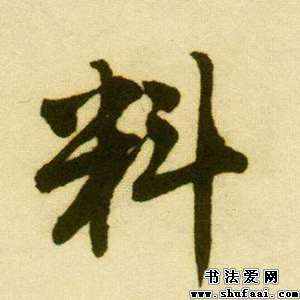 料
书法爱网
www.shufaai.com